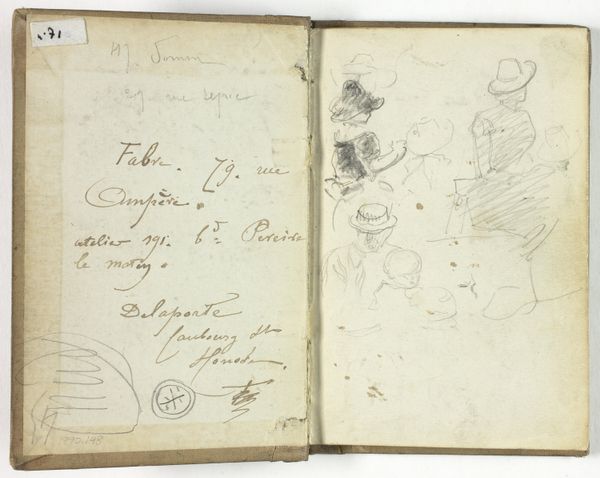 71
H. Somm
rue Lepic
Fabre. 79. rue
Ampère.
atelier 191. bd Pereire
le matin.
Delaporte
faubourg St
Honoré.
1990.143